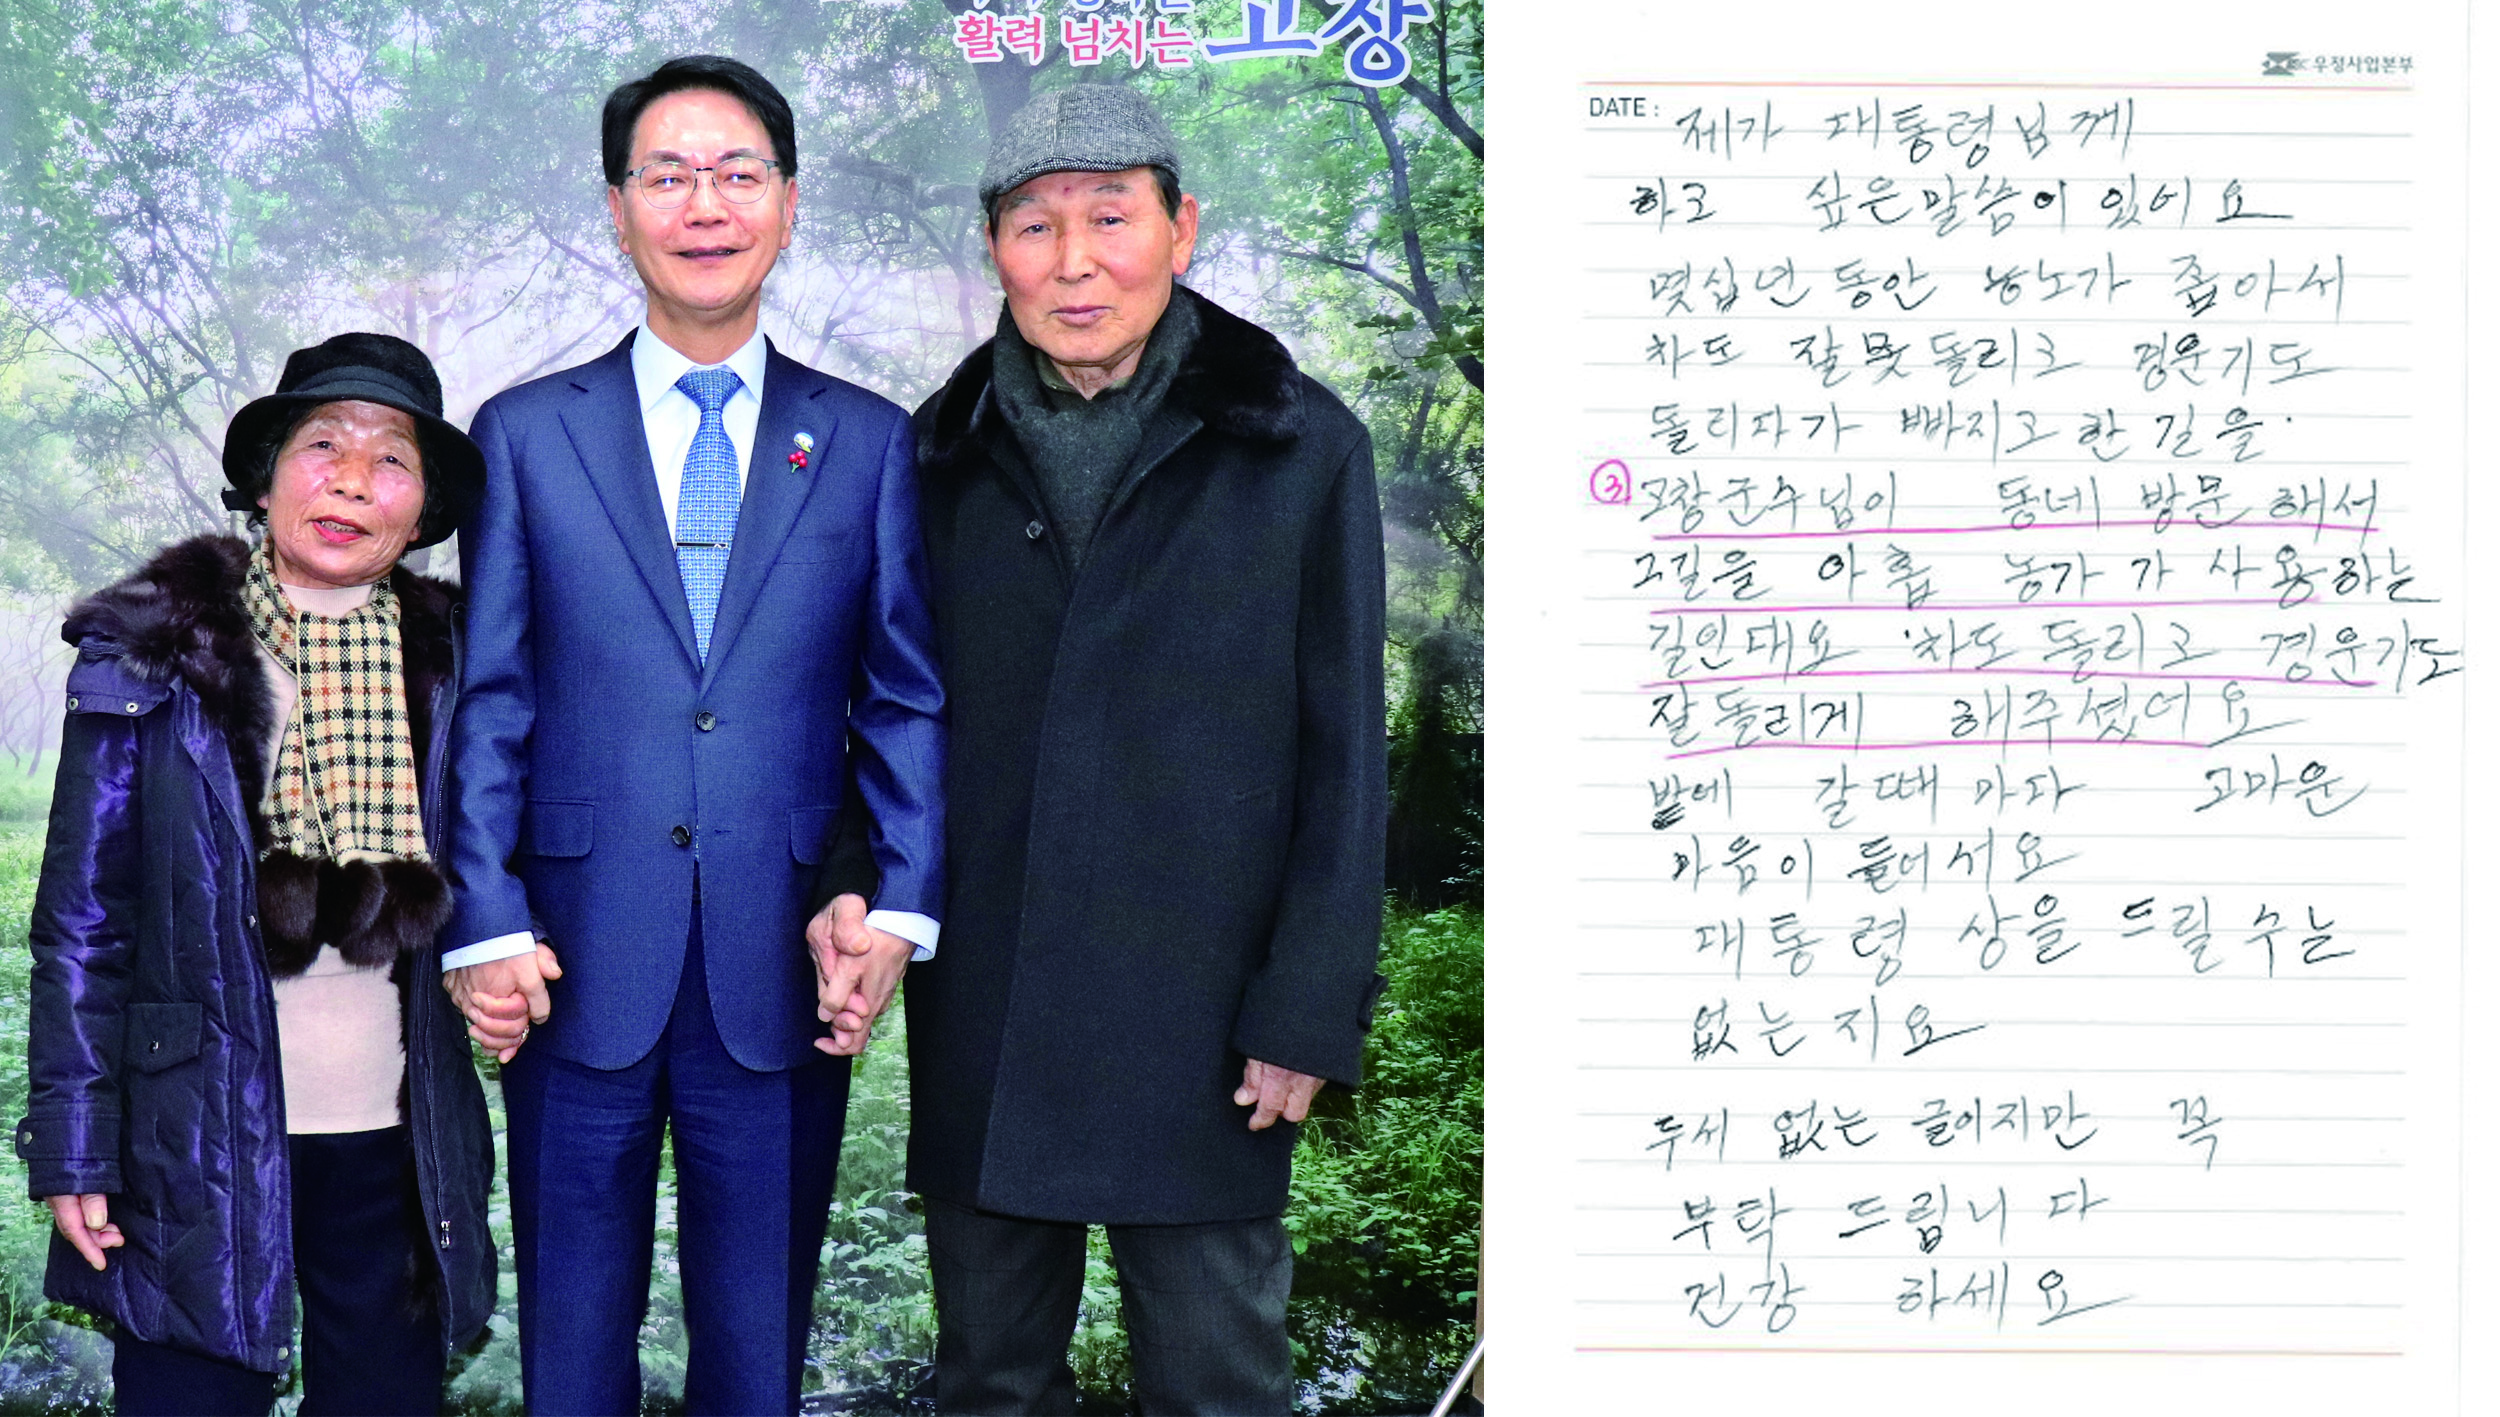 활력 넘치는 고창
우정사업본부
DATE :
제가 대통령님께
하고 싶은말씀이 있어요
몇십년 동안 농노가 좁아서
차도 잘못돌리고 경운기도
돌리다가 빠지고 한 길을.
③ 고창군수님이 동네 방문 해서
그길을 아홉 농가가 사용하는
길인대요 차도 돌리고 경운기도
잘돌리게 해주셨어요
밭에 갈때 마다 고마운
마음이 들어서요
대통령 상을 드릴 수는
없는지요
두서 없는 글이지만 꼭
부탁 드립니다
건강 하세요